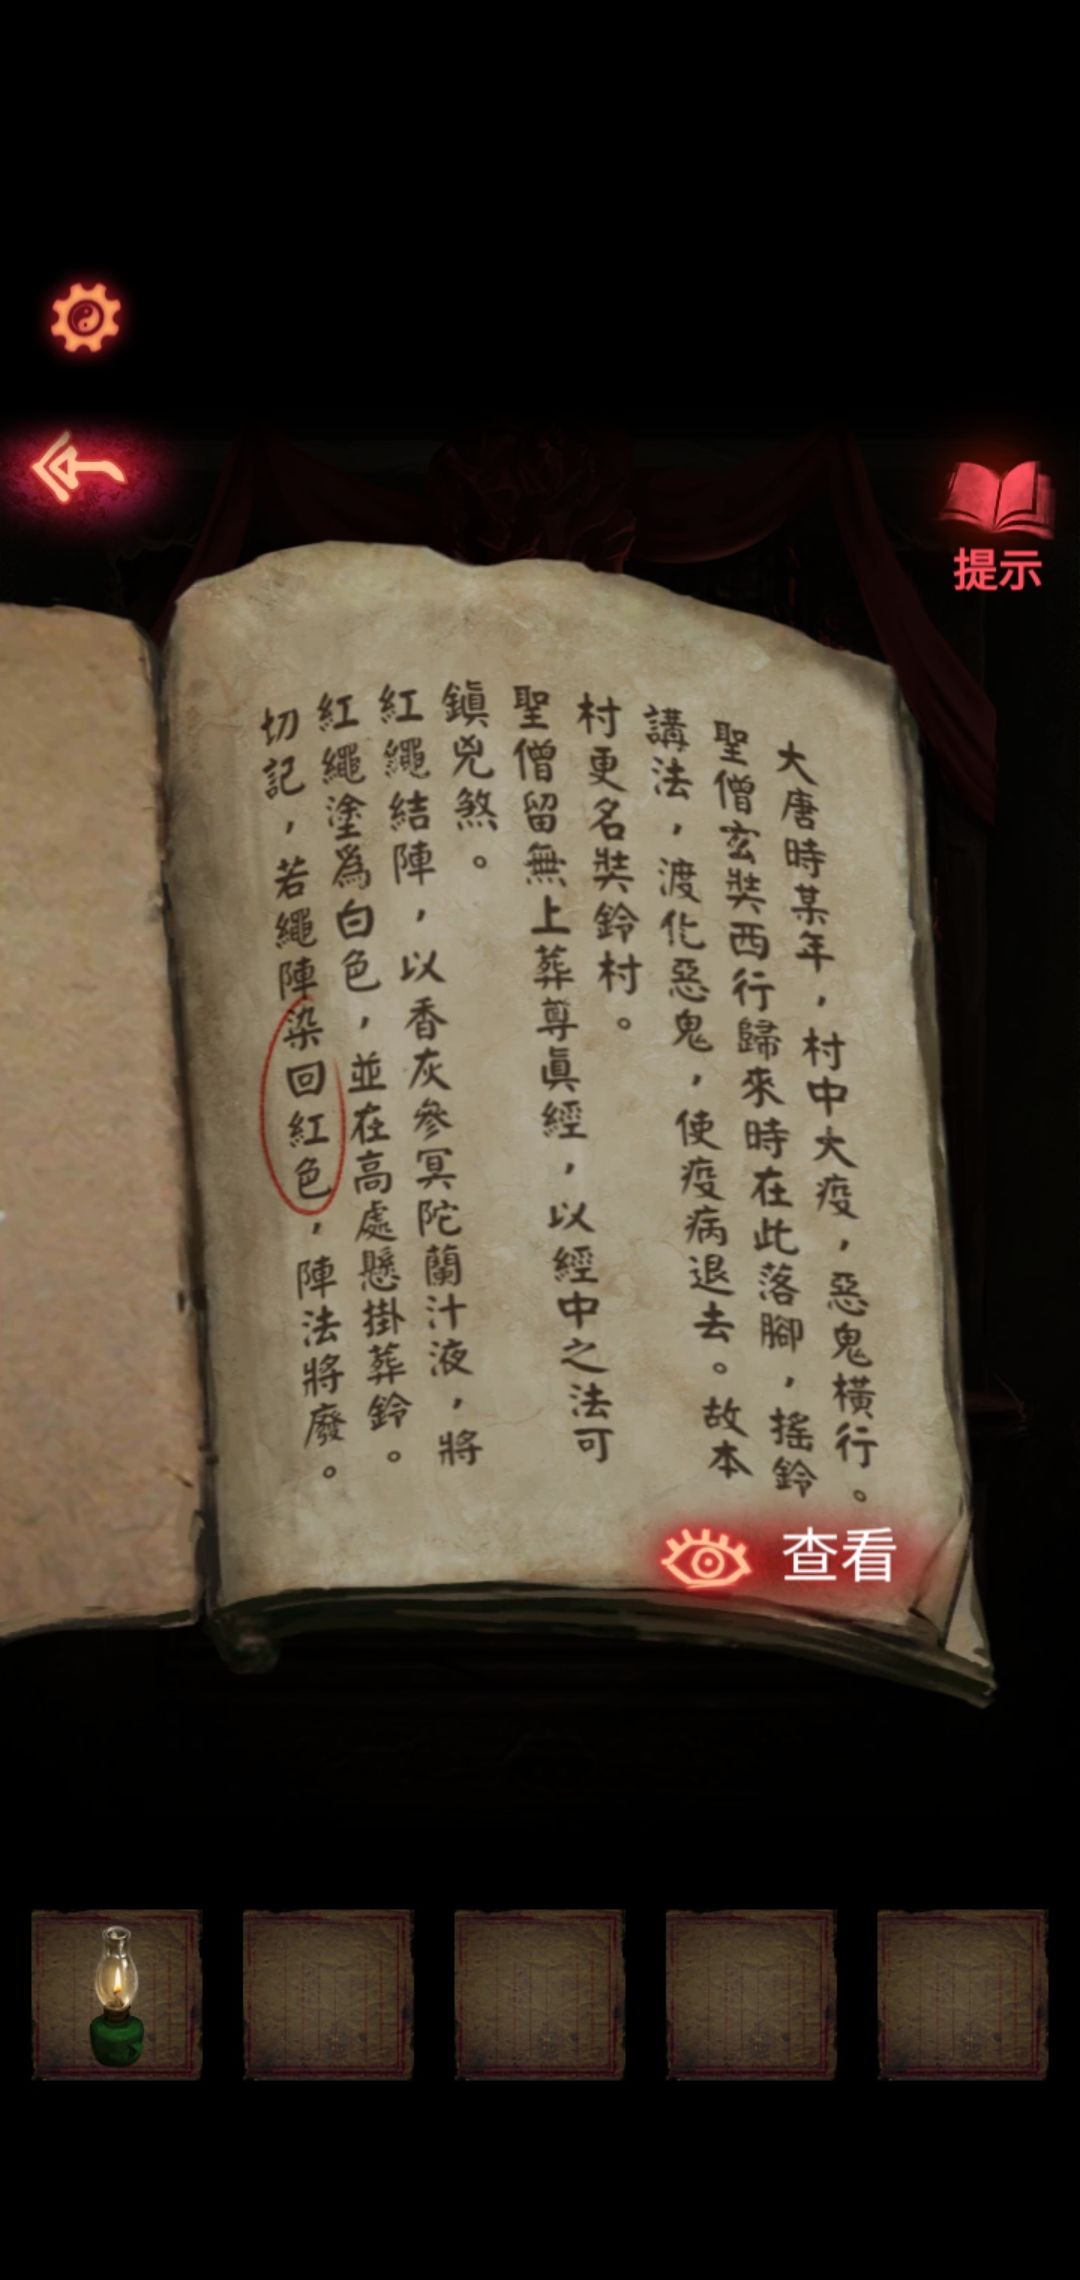 提示
大唐時某年，村中大疫，惡鬼橫行。
聖僧玄奘西行歸來時在此落腳，搖鈴
講法，渡化惡鬼，使疫病退去。故本
村更名奘鈴村。
聖僧留無上葬尊眞經，以經中之法可
鎭兇煞。
紅繩結陣，以香灰參冥陀蘭汁液，將
紅繩塗爲白色，並在高處懸掛葬鈴。
切記，若繩陣染回紅色，陣法將廢。
查看